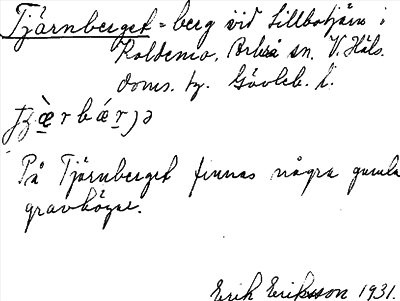 Tjärnberget = berg vid Lillbotjärn i
Koldemo, Arbrå sn. V. Häls.
doms. by. Gävleb. l.
På Tjärnberget finnas några gamla
gravhögar.
Erik Eriksson 1931.